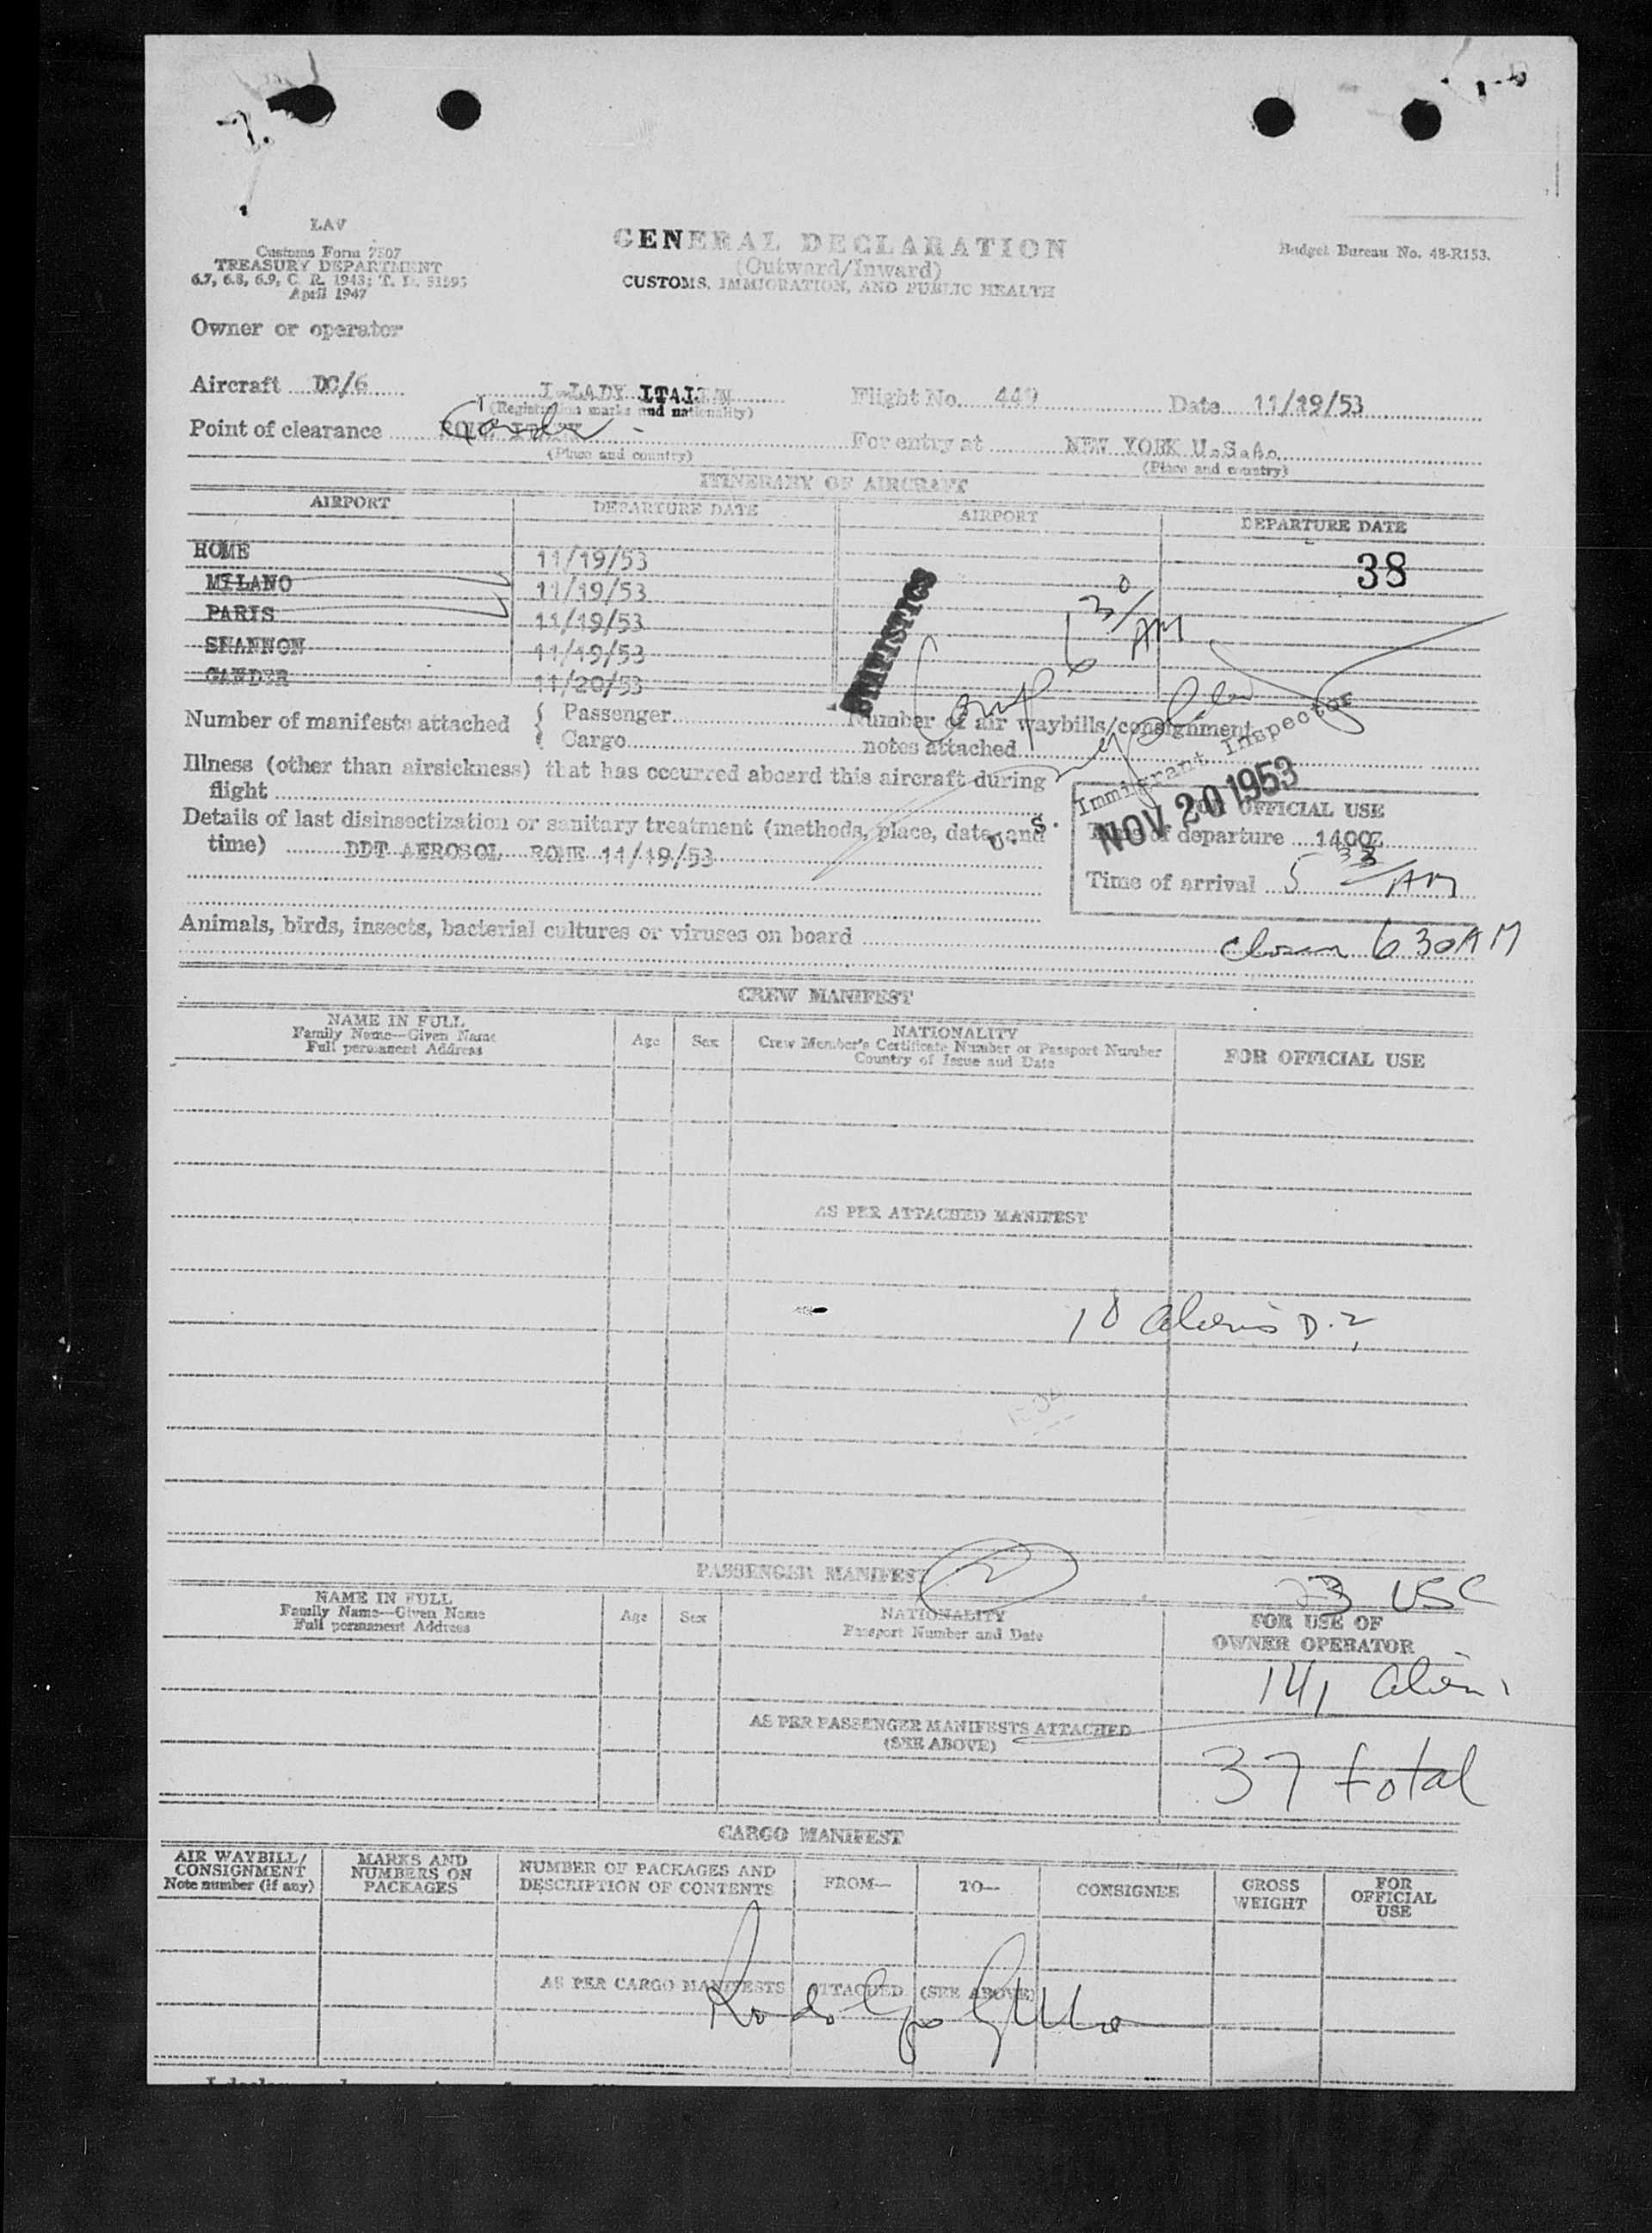 LAV
Customs Form 7507
TREASURY DEPARTMENT
6.7, 6.8, 6.9, C. R. 1943; T. D. 51595
April 1947
GENERAL DECLARATION
(Outward/Inward)
CUSTOMS, IMMIGRATION, AND PUBLIC HEALTH
Budget Bureau No. 48-R153.
Owner or operator
Aircraft DC/6 I-LADY ITALY Flight No. 449 Date 11/19/53
(Registration marks and nationality)
Point of clearance ROME ITALY Gander For entry at NEW YORK U.S.A.
(Place and country) (Place and country)
ITINERARY OF AIRCRAFT
AIRPORT DEPARTURE DATE AIRPORT DEPARTURE DATE
ROME 11/19/53 38
MILANO 11/19/53
PARIS 11/19/53
SHANNON 11/19/53
GANDER 11/20/53
STATISTICS
Comp 6 30/AM
Number of manifests attached { Passenger Number of air waybills/consignment
Cargo notes attached
U. S. Immigrant Inspector
NOV 20 1953
Illness (other than airsickness) that has occurred aboard this aircraft during
flight
Details of last disinsectization or sanitary treatment (methods, place, date, and
time) DDT AEROSOL ROME 11/19/53
FOR OFFICIAL USE
Time of departure 1400Z
Time of arrival 5 33/AM
Animals, birds, insects, bacterial cultures or viruses on board
630AM
CREW MANIFEST
NAME IN FULL
Family Name—Given Name
Full permanent Address
Age Sex
NATIONALITY
Crew Member's Certificate Number or Passport Number
Country of Issue and Date
FOR OFFICIAL USE
AS PER ATTACHED MANIFEST
10 aliens D.2
PASSENGER MANIFEST
2
23 USC
NAME IN FULL
Family Name—Given Name
Full permanent Address
Age Sex
NATIONALITY
Passport Number and Date
FOR USE OF
OWNER OPERATOR
14 alien
AS PER PASSENGER MANIFESTS ATTACHED
(SEE ABOVE)
37 total
CARGO MANIFEST
AIR WAYBILL/
CONSIGNMENT
Note number (if any)
MARKS AND
NUMBERS ON
PACKAGES
NUMBER OF PACKAGES AND
DESCRIPTION OF CONTENTS
FROM—
TO—
CONSIGNEE
GROSS
WEIGHT
FOR
OFFICIAL
USE
AS PER CARGO MANIFESTS ATTACHED (SEE ABOVE)
Rodolfo